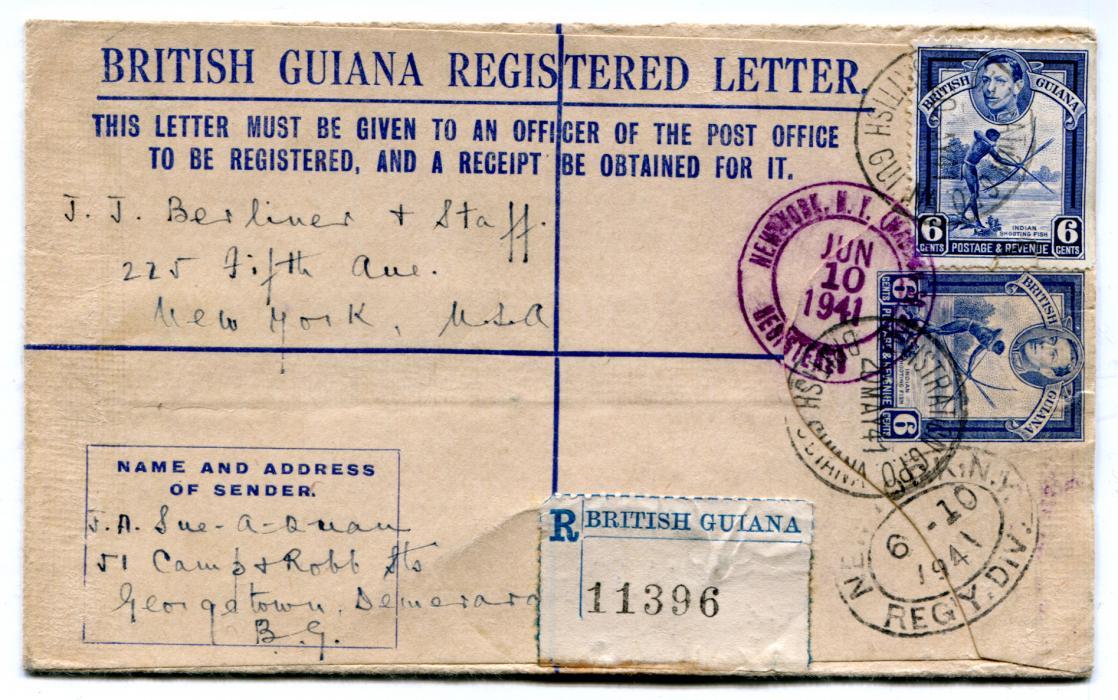 BRITISH GUIANA REGISTERED LETTER.
THIS LETTER MUST BE GIVEN TO AN OFFICER OF THE POST OFFICE
TO BE REGISTERED, AND A RECEIPT BE OBTAINED FOR IT.
J. J. Berliner + Staff.
225 Fifth Ave.
New York, U.S.A
NAME AND ADDRESS
OF SENDER.
J. A. Sue-A-Quan
51 Camp & Robb Sts
Georgetown, Demerara
B.G.
R BRITISH GUIANA
11396
BRITISH GUIANA
INDIAN
SHOOTING FISH
6 CENTS POSTAGE & REVENUE 6 CENTS
BRITISH GUIANA
INDIAN
SHOOTING FISH
6 CENTS POSTAGE & REVENUE 6 CENTS
NEW YORK, N.Y.
JUN
10
1941
REGISTERED
REGISTRATION G.P.O.
27 MAY 41
BRITISH GUIANA
BRITISH GUIANA
N.Y.
6 -10
1941
REG'Y. DIV.